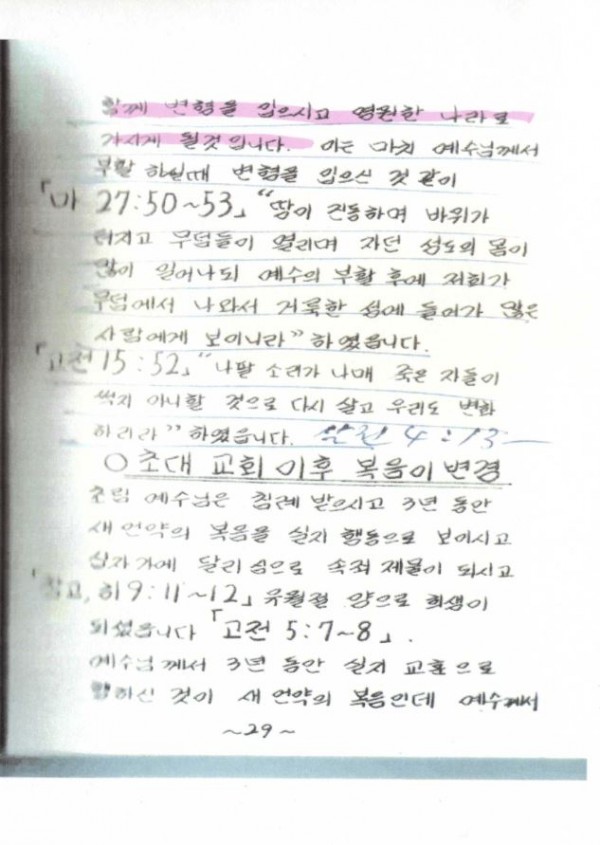 함께 변형을 입으시고 영원한 나라로
가시게 될것입니다. 이는 마치 예수님께서
부활 하실때 변형을 입으신 것 같이
「마 27:50~53」 “땅이 진동하며 바위가
터지고 무덤들이 열리며 자던 성도의 몸이
많이 일어나되 예수의 부활 후에 저희가
무덤에서 나와서 거룩한 성에 들어가 많은
사람에게 보이니라” 하였읍니다.
「고전 15:52」 “나팔 소리가 나매 죽은 자들이
썩지 아니할 것으로 다시 살고 우리도 변화
하리라” 하였읍니다. 살전 4:13
○ 초대 교회 이후 복음이 변경
초림 예수님은 침례 받으시고 3년 동안
새 언약의 복음을 실지 행동으로 보이시고
십자가에 달리심으로 속죄 제물이 되시고
「참고, 히 9:11~12」 유월절 양으로 희생이
되셨읍니다 「고전 5:7~8」.
예수님께서 3년 동안 실지 교훈으로
행하신 것이 새 언약의 복음인데 예수께서
~29~